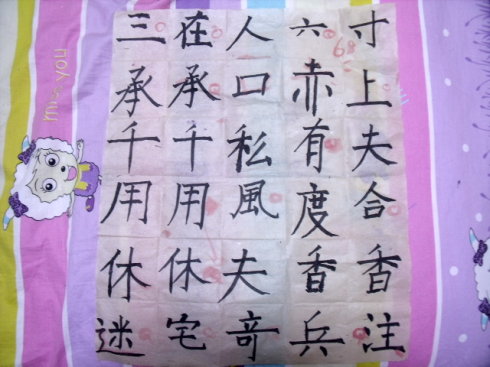 寸上夫合香注
六赤有度香兵
人口私風夫奇
在承千用休宅
三承千用休迷
68
miss you